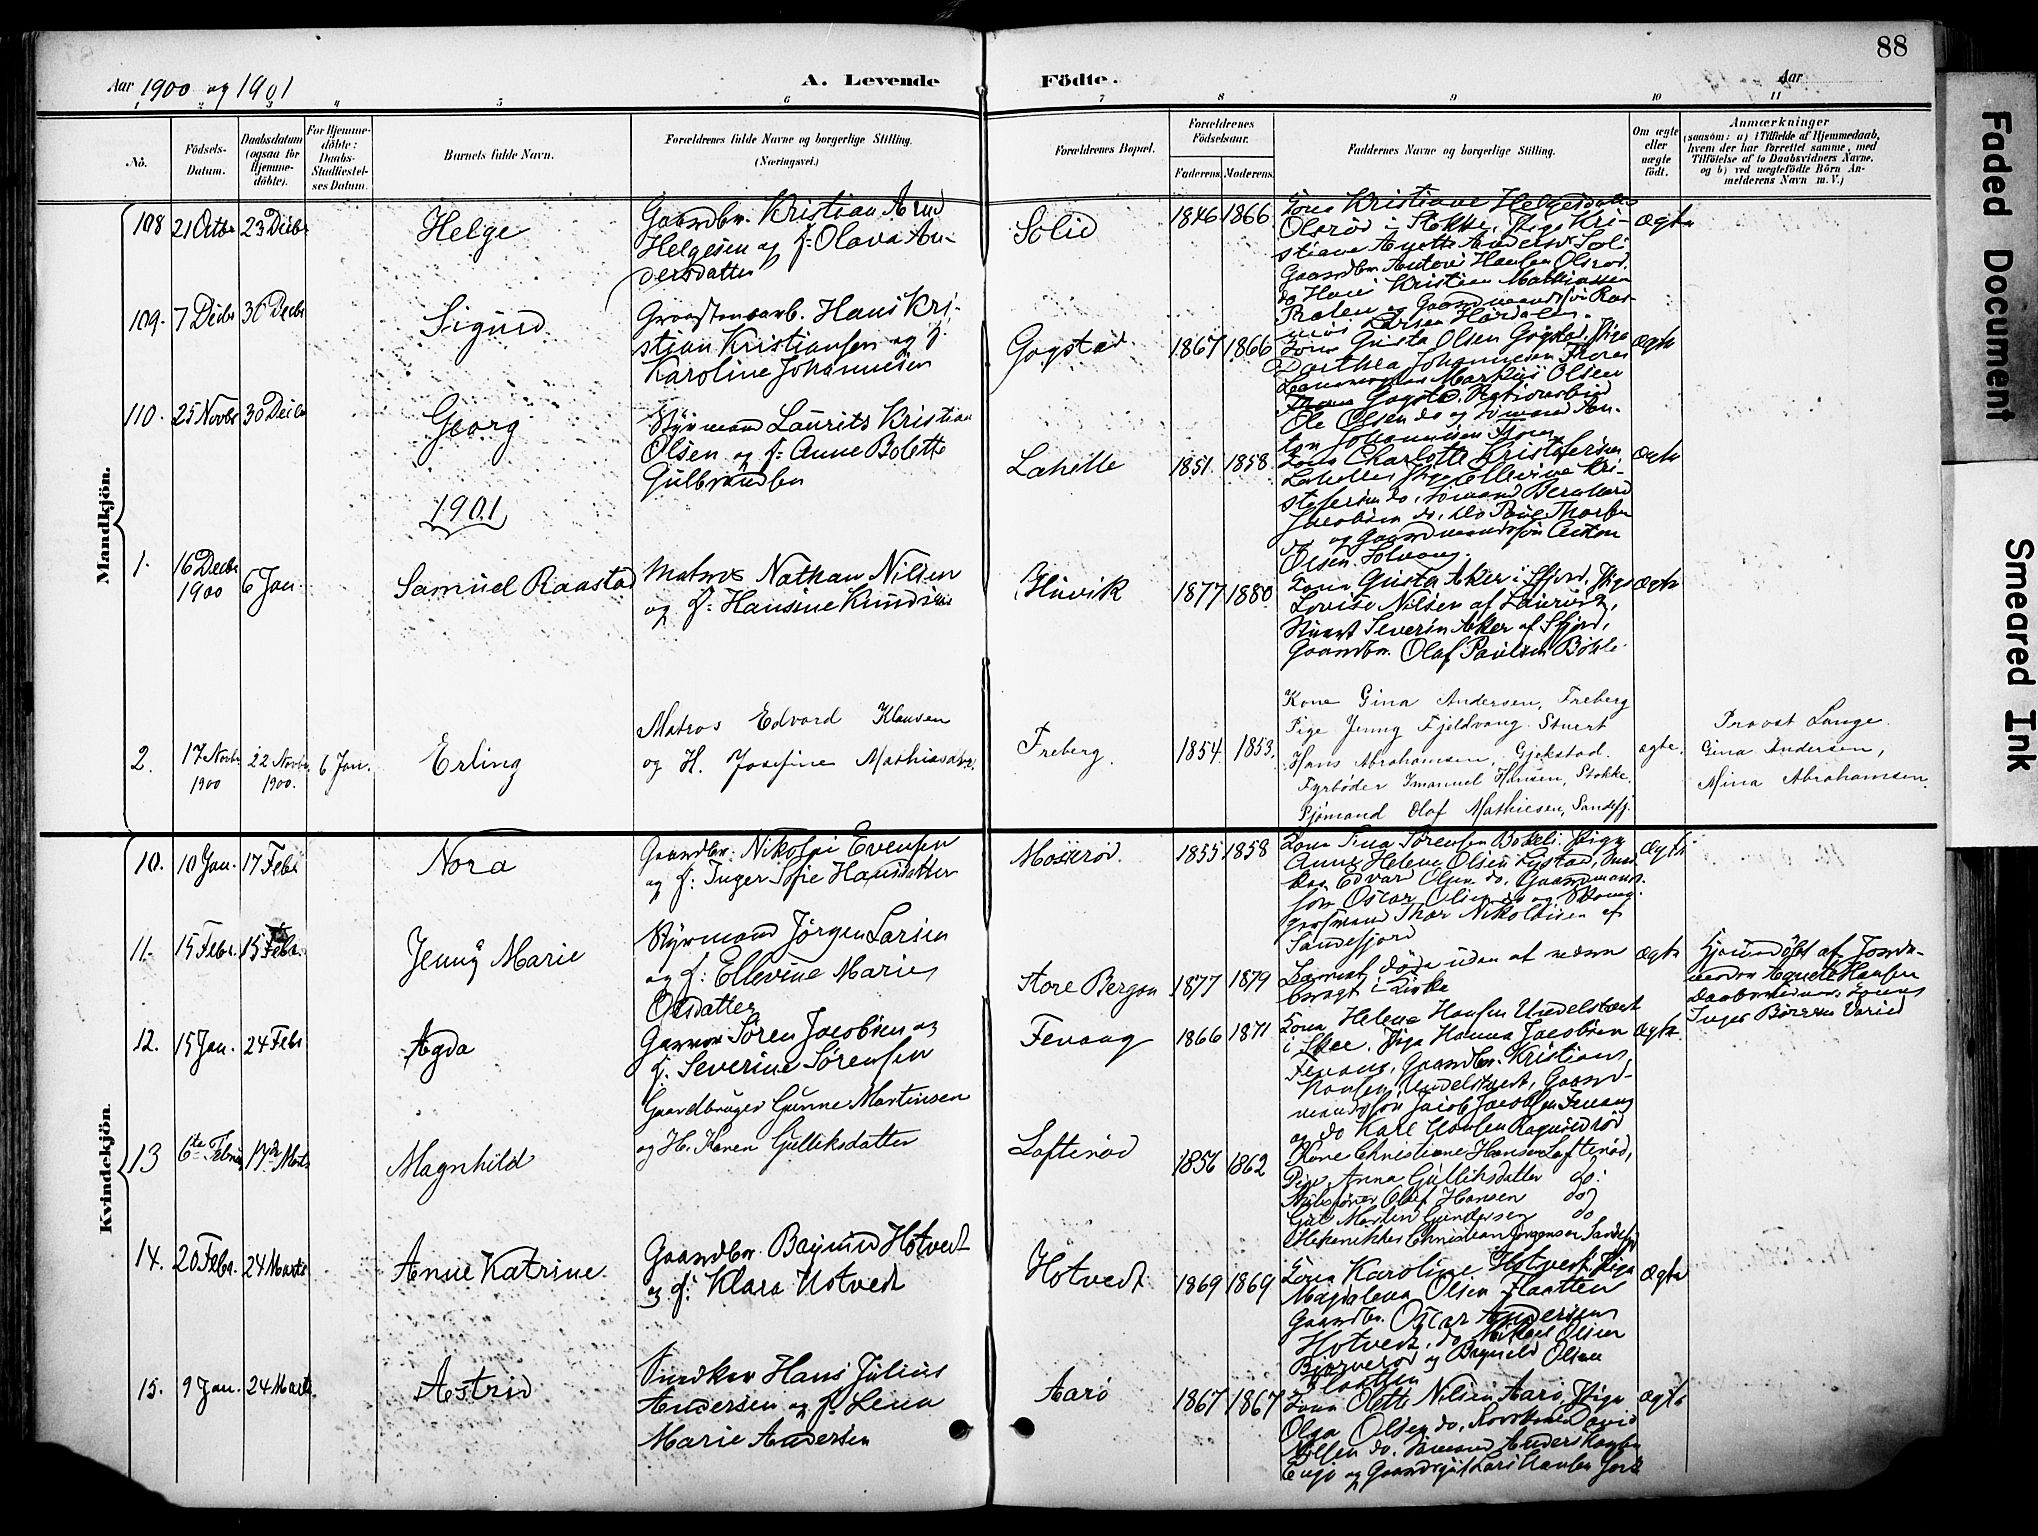 88
Aar 1900 og 1901
A. Levende Födte.
Aar
1 2 3 4 5 6 7 8 9 10 11
No.
Födsels-Datum.
Daabsdatum (ogsaa for Hjemmedöbte).
For Hjemmedöbte: Daabs-Stadfæstelses Datum.
Barnets fulde Navn.
Forældrenes fulde Navne og borgerlige Stilling.
(Næringsvei.)
Forældrenes Bopæl.
Forældrenes Födselsaar.
Faderens. Moderens.
Faddernes Navne og borgerlige Stilling.
Om ægte eller uægte födt.
Anmærkninger
(saasom: a) i Tilfælde af Hjemmedaab, hvem der har forrettet samme, med Tilföielse af to Daabsvidners Navne. og b) ved uægtefödte Börn Anmelderens Navn m. V.)
Mandkjön.
108 21 Octbr 23 Decbr
Helge
Gaardbr. Kristian Arnd
Helgesen og f: Olava An-
dersdatter
Solid
1846 1866
Kona Kristiane Helgesdatter
Olsrød i Stokke, Pige Kri-
stiane Anette Anders. Soli
Gaardbr. Anton Hansen Olsrød,
do Hans Kristian Mathiassen
Ægte
109. 7 Decbr 30 Decbr
Sigurd
Hans Kri-
stian Kristiansen og f.
Karoline Johannesen
Gogstad
1867 1866
Kona Gusta Olsen Gogstad, Pige
Dorthea Johannesen
Markus Olsen
Ole Olsen do og Sømand An-
ton Johannesen
Ægte
110. 25 Novbr 30 Decbr
Georg
Styrmand Laurits Kristian
Olsen og f. Anne Bolette
Gulbrandsen
Lahelle
1851. 1858
Kona Charlotte Kristofersen
Lahelle, Pige Ellevine Kri-
stofersen do, Sømand Bernhard
Jacobsen do, do Paul Thorsen
og Gaardmandssøn Anton
Olsen Solvang.
Ægte
1901
1. 16 Decbr 1900 6 Jan.
Samuel Raastad
Matros Nathan Nilsen
og f: Hansine Knudsen
Huvik
1877 1880
Kona Gusta Aker i Sfjord, Pige
Lovise Nilsen af Laurvik,
Stuert Severin Aker af Sfjord,
Gaardbr. Olaf Paulsen Bøhle
Ægte
2. 17 Novbr 1900 22 Novbr 1900. 6 Jan.
Erling
Matros Edvard Klausen
og H. Josefine Mathiasdtr.
Freberg.
1854 1853.
Kone Gina Andersen, Freberg
Pige Jenny Fjeldvang. Stuert
Hans Abrahamsen, Gjekstad.
Fyrbøder Imanuel Hansen, Stokke,
Sjømand Olaf Mathiesen, Sandefj.
ægte.
Provst Lange.
Gina Andersen,
Mina Abrahamsen.
Kvindekjön.
10. 10 Jan. 17 Febr
Nora
Gaardbr. Nikolai Evensen
og f: Inger Sofie Hansdatter
Moserød.
1855 1858
Kona Tina Sørensen Bokeli, Pige
Anne Helene Olsen Lystad, Smd.
Edvar Olsen do, Gaardmands-
søn Oscar Olsen do og
Thor Nikolaisen af
Sandefjord
Ægte
11. 15 Febr. 15 Febr.
Jenny Marie
Styrmand Jørgen Larsen
og f: Ellevine Marie
Olsdatter
Store Bergan
1877 1879
Barnet døde uden at være
bragt i Kirke
Ægte
Hjemmedøbt af Jorde-
moder Agnete Hansen
12. 15 Jan. 24 Febr
Agda
Garver Søren Jacobsen og
f. Severine Sørensen
Fevang
1866 1871
Kona Helene Hansen Undelstvet
i Skee, Pige Hanna Jacobsen
Fevang, Gaardbr. Kristian
Hansen Undelstvedt, Gaard-
mandssøn Jacob Jacobsen Fevang
og do Karl Hansen
Ægte
13 6te Februar 17de Marts
Magnhild
Gaardbruger Gunne Martinsen
og H. Karen Gulliksdatter
Løfterød
1856 1862
Kone Christiane Hansen Løfterød,
Pige Anna Gulliksdatter do:
Olaf Hansen do
Martin Gundersen do
Mekanikker Christian Jørgensen Sandefj.
14. 20 Febr. 24 Marts
Anne Katrine
Gaardbr. Bagnus Hotvedt
og f: Klara Hotvedt
Hotvedt
1869 1869
Kona Karoline Hotvedt, Pige
Magdalena Olsen Flaatten
Gaardbr. Oscar Andersen
Hotvedt, do Mikael Olsen
Bjørnerød og Bagnald Olsen
Flaatten
Ægte
15. 9 Jan. 24 Marts.
Astrid
Snedker Hans Julius
Andersen og f. Lena
Marie Andersen
Aarø
1867 1867
Kona Olette Nilsen Aarø, Pige
Olga Olsen do, David
Nilsen do, Sømand Anders
Ægte
Faded Document
Smeared Ink